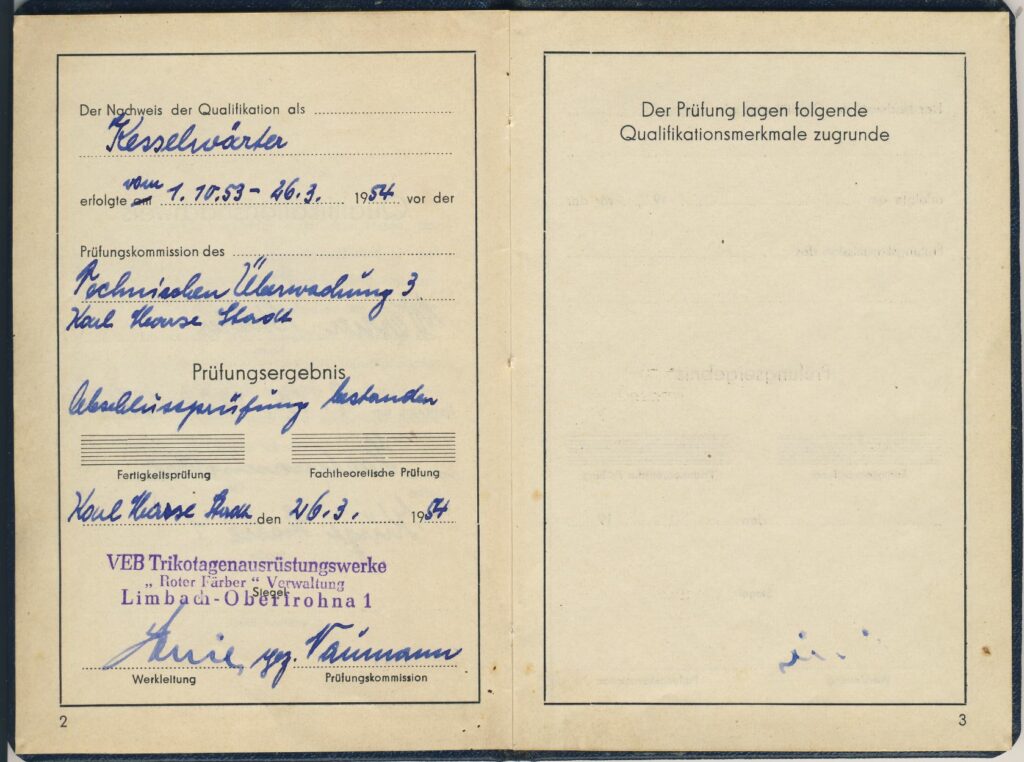 Der Nachweis der Qualifikation als
Kesselwärter
vom
erfolgte am 1.10.53 - 26.3. 1954 vor der
Prüfungskommission des
Technischen Überwachung 3
Karl Marx Stadt
Prüfungsergebnis
Abschlussprüfung bestanden
Fertigkeitsprüfung Fachtheoretische Prüfung
Karl Marx Stadt den 26.3. 1954
VEB Trikotagenausrüstungswerke
„Roter Färber“ Verwaltung
Siegel
Limbach-Oberfrohna 1
gez. Naumann
Werkleitung Prüfungskommission
2
Der Prüfung lagen folgende
Qualifikationsmerkmale zugrunde
3